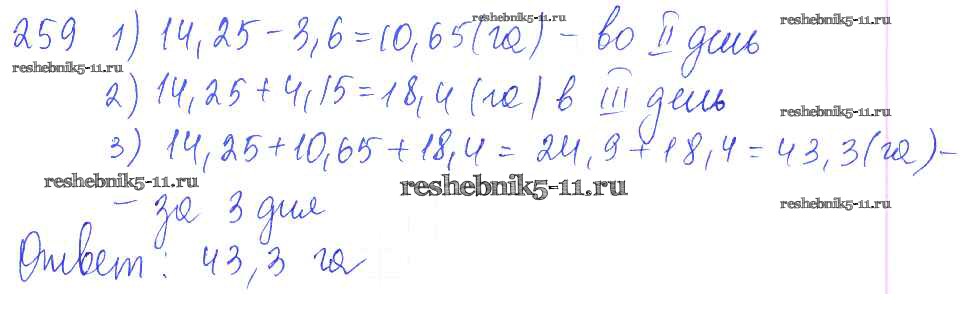 reshebnik5-11.ru reshebnik5-11.ru
259 1) 14,25 - 3,6 = 10,65 (га) - во II день
reshebnik5-11.ru
2) 14,25 + 4,15 = 18,4 (га) в III день
reshebnik5-11.ru
3) 14,25 + 10,65 + 18,4 = 24,9 + 18,4 = 43,3 (га) -
reshebnik5-11.ru reshebnik5-11.ru
- за 3 дня
reshebnik5-11.ru
Ответ: 43,3 га